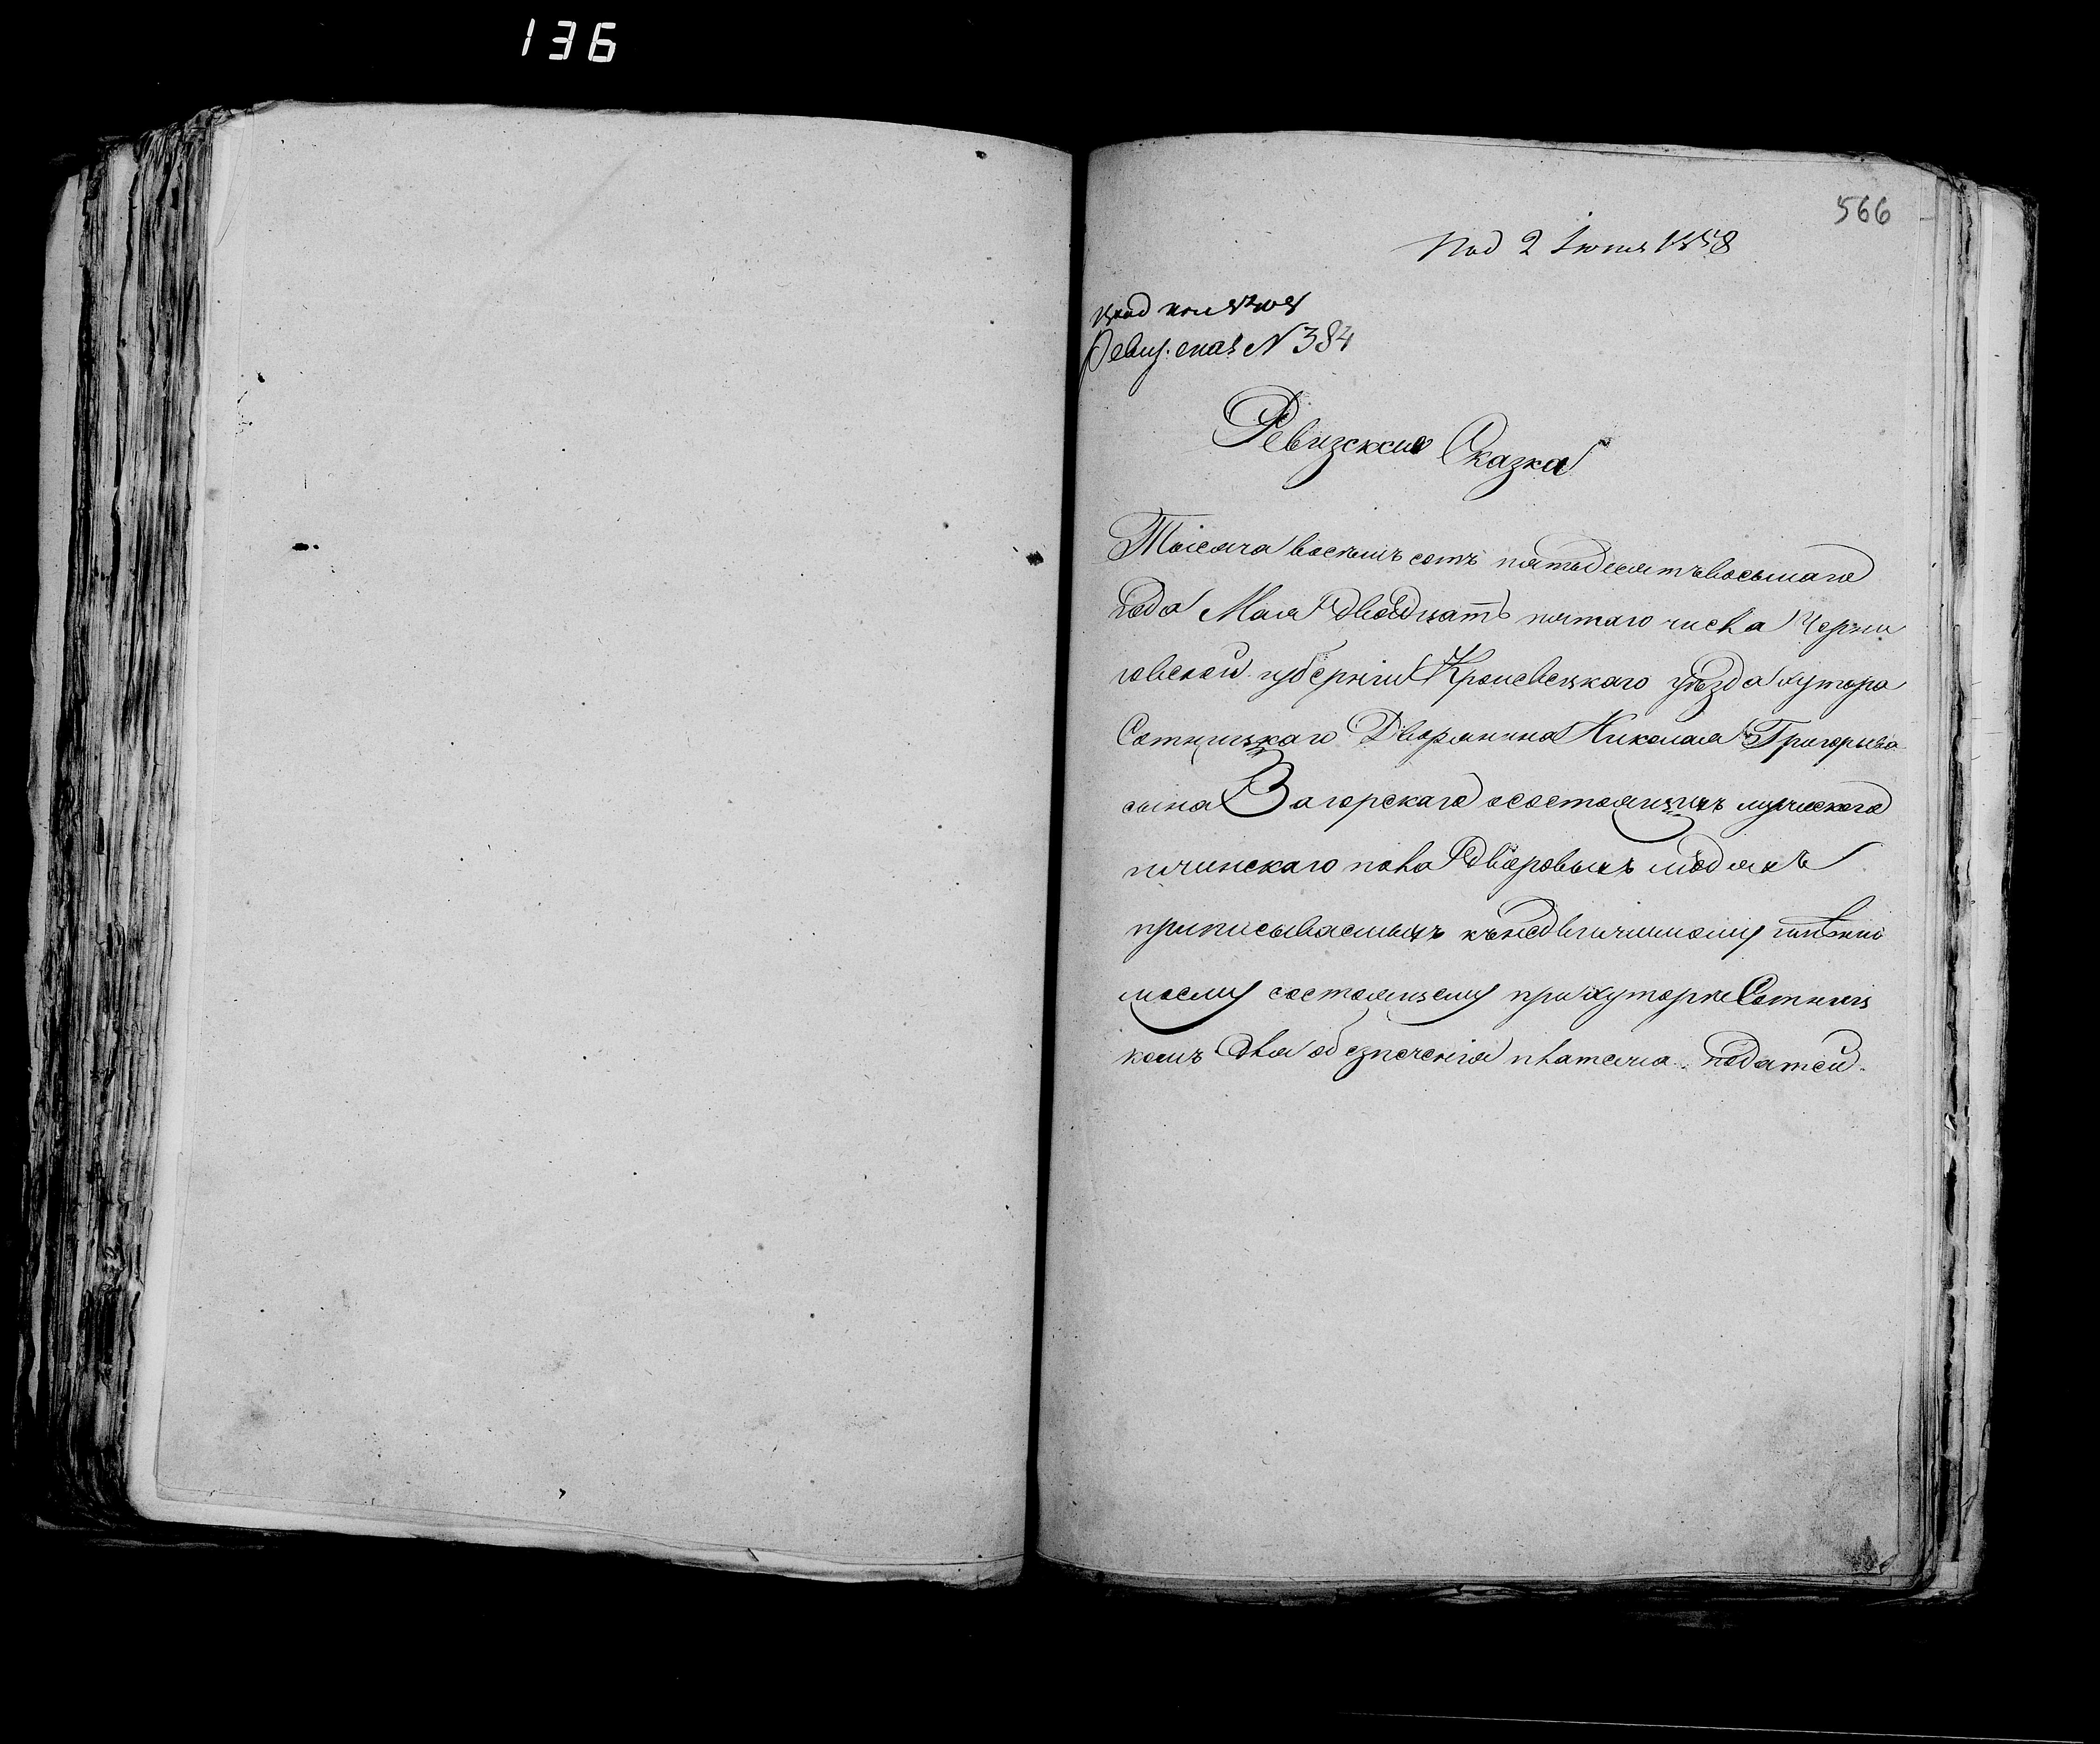 136
566
Под 2 Iюня 1858
Ревиз. сказ N 384
Ревизская Сказка
Тысяча восемь сотъ пятьдесятъ восьмаго
года Мая двадцать пятаго числа Черни
говской губернiи Кролевецкаго уѣзда хутора
Сотницкаго Дворянина Николая Григорьева
сына Загорскаго осостоящихъ мужескаго
и женскаго пола Дворовыхъ людяхъ
приписываемыхъ кънедвижимому имѣнiю
моему состоящему при хуторѣ Сотниц
комъ для обезпеченiя платежа податей.